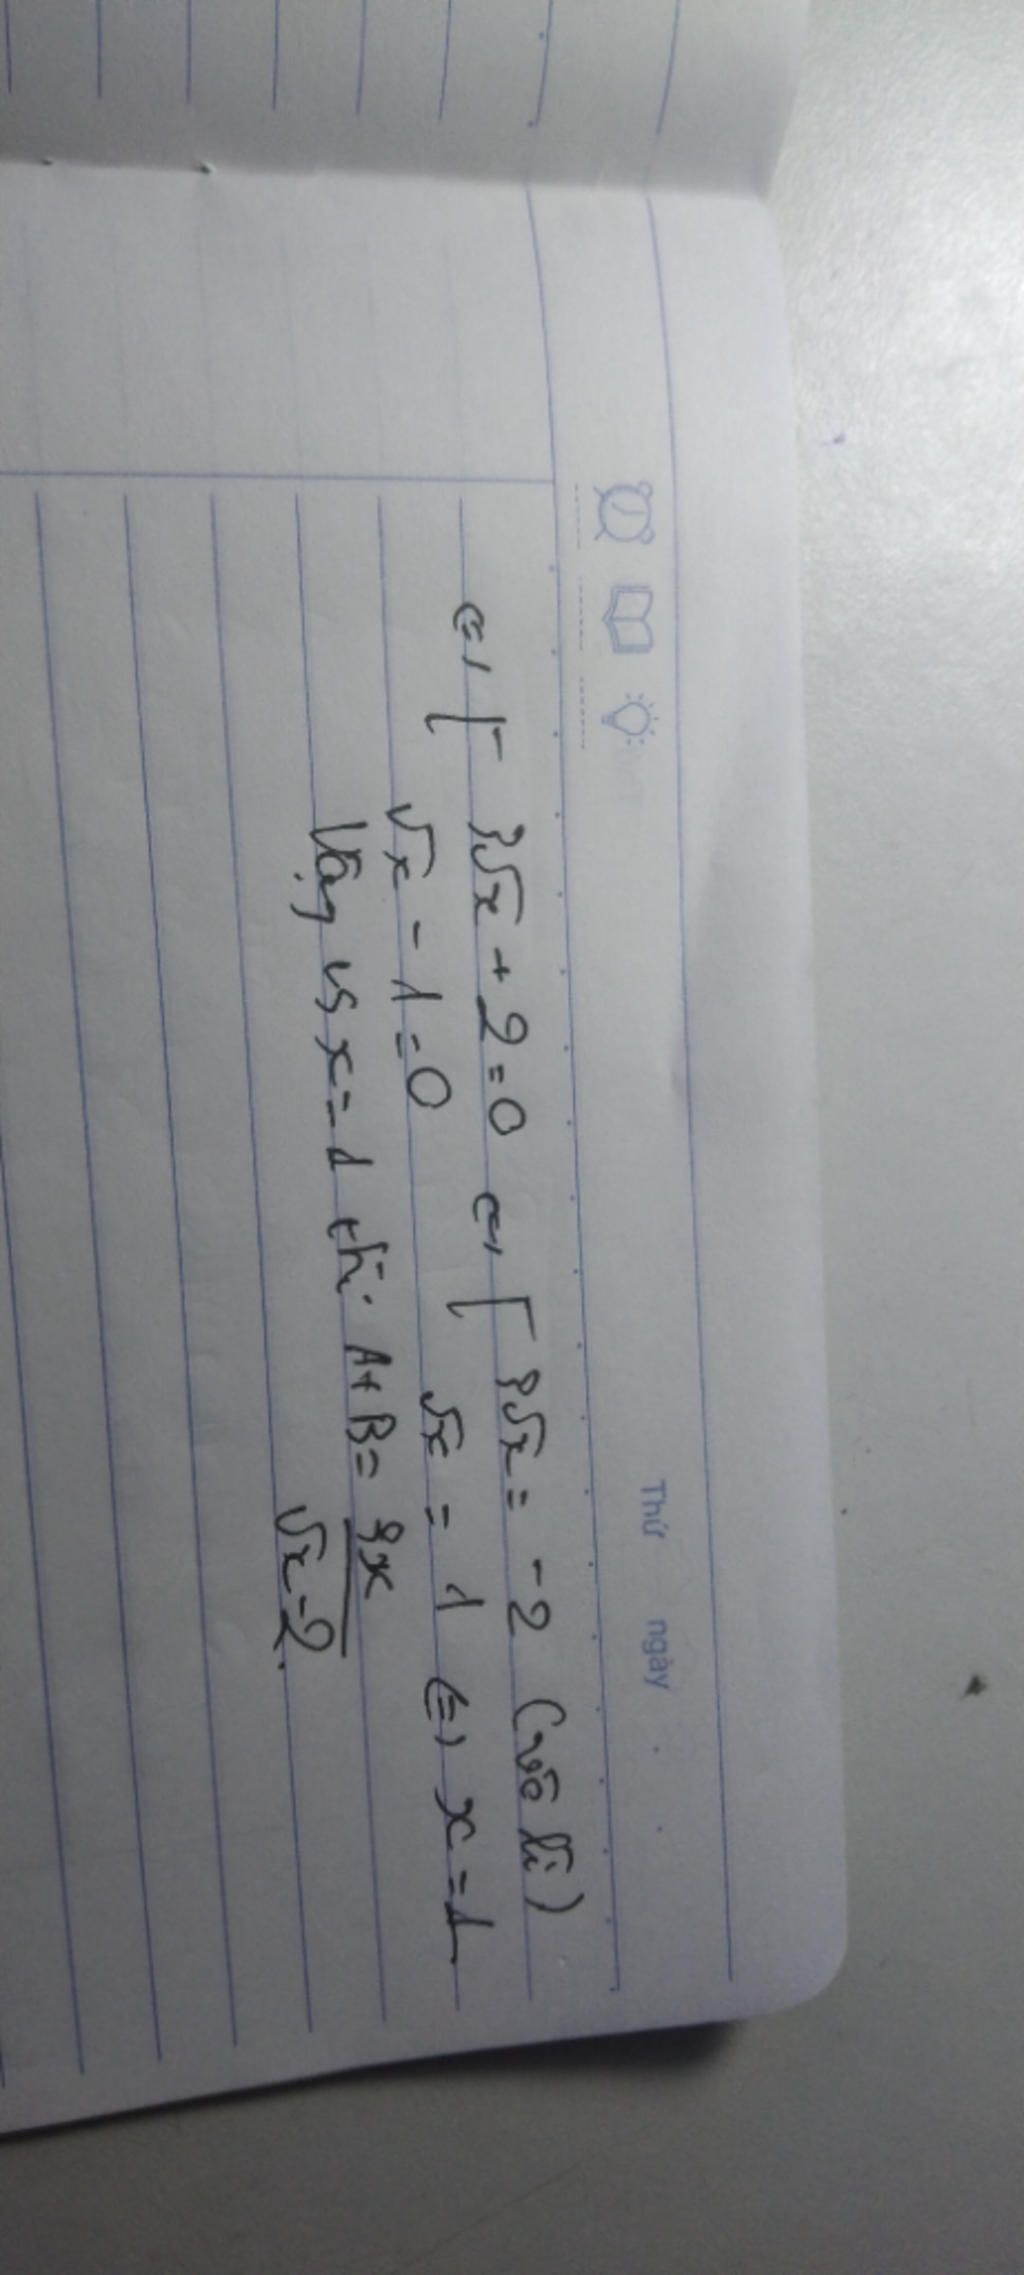 Thứ ngày
⇔ [ 3√x + 2 = 0 ⇔ [ 3√x = -2 (vô lí)
√x - 1 = 0 √x = 1 ⇔ x = 1
Vậy vs x = 1 thì A + B = 3x / √x - 2.